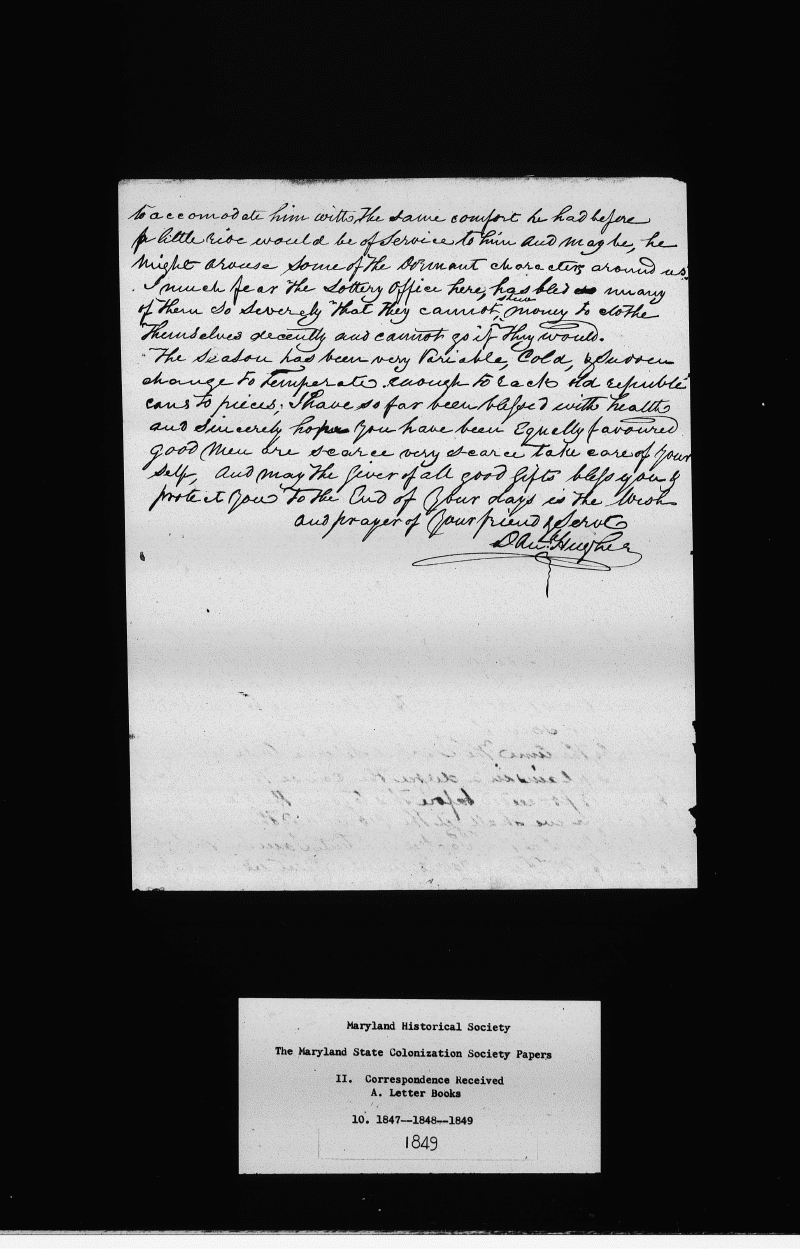 to accomodate him with the same comfort he had before
little ride would be of Service to him and may be, he
might arouse some of the Dormant characters around us.
I much fear the Lottery Office here, has bled so many
of them so severely that they cannot money to clothe
themselves decently and cannot go if they would.
The season has been very Variable, Cold, & Sudden
change to temperate enough to rack old republi
cans to pieces; I have so far been blessed with health
and sincerely hope you have been Equally favoured
good men are scarce very scarce take care of your
self, and may the Giver of all good Gifts bless you &
protect you to the End of your days is the Wish
and prayer of your friend & Servt
Danl. Hughes
Maryland Historical Society
The Maryland State Colonization Society Papers
II. Correspondence Received
A. Letter Books
10. 1847--1848--1849
1849